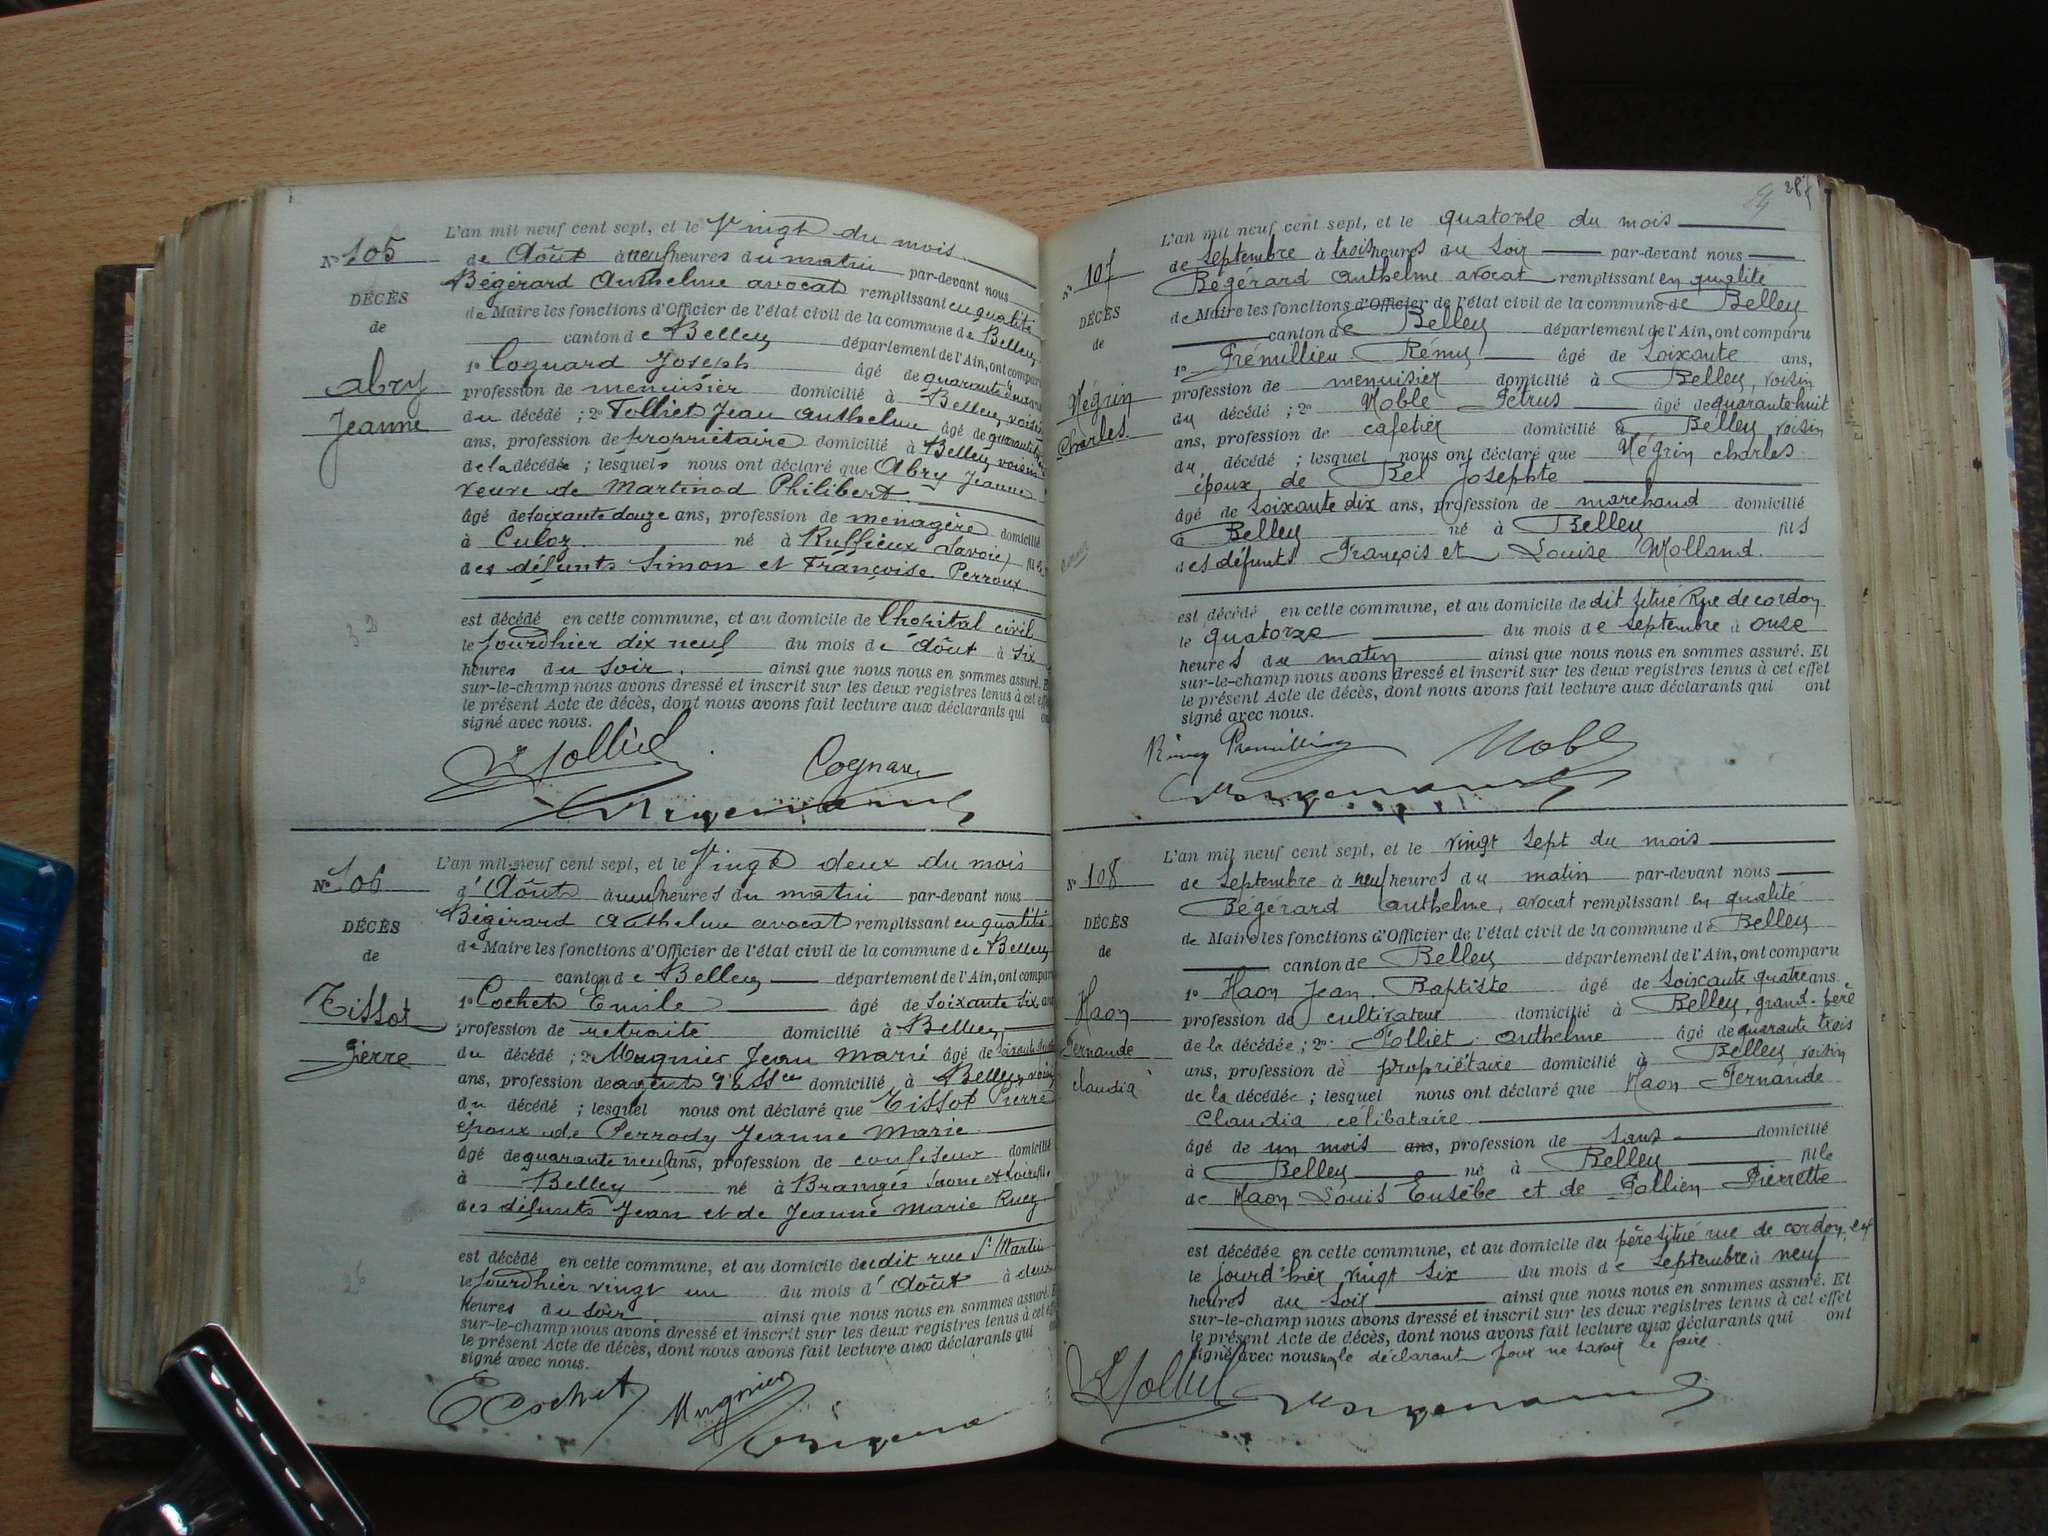 L'an mil neuf cent sept, et le Vingt du mois
N° 105
de Août à neuf heures du matin par-devant nous
Bégérard Anthelme avocat remplissant en qualité
DÉCÈS
de Maire les fonctions d'Officier de l'état civil de la commune de Belley
de
canton de Belley département de l'Ain, ont comparu
1° Cognard Joseph âgé de quarante deux ans
Abry
profession de menuisier domicilié à Belley, voisin
Jeanne
du décédé ; 2° Tolliet Jean Anthelme âgé de quarante
ans, profession de propriétaire domicilié à Belley voisin
de la décédée ; lesquels nous ont déclaré que Abry Jeanne
veuve de Martinod Philibert.
âgé de soixante douze ans, profession de ménagère domicilié
à Culoz né à Ruffieux Savoie, fille
des défunts Simon et Françoise Perroux
est décédé en cette commune, et au domicile de l'hopital civil
le jourdhier dix neuf du mois de Août à six
heures du soir. ainsi que nous nous en sommes assuré. Et
sur-le-champ nous avons dressé et inscrit sur les deux registres tenus à cet effet
le présent Acte de décès, dont nous avons fait lecture aux déclarants qui ont
signé avec nous.
Tolliet Cognard
L'an mil neuf cent sept, et le Vingt deux du mois
N° 106
d'Août à neuf heures du matin par-devant nous
Bégérard Anthelme avocat remplissant en qualité
DÉCÈS
de Maire les fonctions d'Officier de l'état civil de la commune de Belley
de
canton de Belley département de l'Ain, ont comparu
1° Cochet Emile âgé de soixante six ans
Tissot
profession de retraité domicilié à Belley
Pierre
du décédé ; 2° Mugnier Jean Marie âgé de
ans, profession de agent d'Ass.ce domicilié à Belley, voisin
du décédé ; lesquel nous ont déclaré que Tissot Pierre
époux de Perrody Jeanne Marie
âgé de quarante neuf ans, profession de confiseur domicilié
à Belley né à Branges Saone et Loire fils
des défunts Jean et de Jeanne Marie Ruey
est décédé en cette commune, et au domicile du dit rue St Martin
le jourdhier vingt un du mois d'Août à deux
heures du soir. ainsi que nous nous en sommes assuré. Et
sur-le-champ nous avons dressé et inscrit sur les deux registres tenus à cet effet
le présent Acte de décès, dont nous avons fait lecture aux déclarants qui ont
signé avec nous.
E Cochet Mugnier
L'an mil neuf cent sept, et le quatorze du mois
N° 107
de septembre à trois heures du soir par-devant nous
Bégérard Anthelme avocat remplissant en qualité
DÉCÈS
de Maire les fonctions d'Officier de l'état civil de la commune de Belley
de
canton de Belley département de l'Ain, ont comparu
1° Frémillieu Rémy âgé de soixante ans,
Négrin
profession de menuisier domicilié à Belley, voisin
Charles
du décédé ; 2° Noble Pétrus âgé de quarante huit
ans, profession de cafetier domicilié à Belley voisin
du décédé ; lesquel nous ont déclaré que Négrin Charles
époux de Bel Josephte
âgé de soixante dix ans, profession de marchand domicilié
à Belley né à Belley fils
des défunts François et Louise Molland.
est décédé en cette commune, et au domicile de dit situé Rue de cordon
le quatorze du mois de septembre à onze
heures du matin ainsi que nous nous en sommes assuré. Et
sur-le-champ nous avons dressé et inscrit sur les deux registres tenus à cet effet
le présent Acte de décès, dont nous avons fait lecture aux déclarants qui ont
signé avec nous.
Rémy Noble
L'an mil neuf cent sept, et le vingt sept du mois
N° 108
de septembre à neuf heures du matin par-devant nous
Bégérard Anthelme, avocat remplissant en qualité
DÉCÈS
de Maire les fonctions d'Officier de l'état civil de la commune de Belley
de
canton de Belley département de l'Ain, ont comparu
1° Haon Jean Baptiste âgé de soixante quatre ans.
Haon
profession de cultivateur domicilié à Belley, grand-père
Fernande
de la décédée ; 2° Tolliet Anthelme âgé de quarante trois
Claudia
ans, profession de propriétaire domicilié à Belley voisin
de la décédée ; lesquel nous ont déclaré que Haon Fernande
Claudia célibataire
âgé de un mois ans, profession de sans domicilié
à Belley né à Belley fille
de Haon Louis Eusèbe et de Pollien Pierrette
est décédée en cette commune, et au domicile du père situé rue de cordon,
le jourd'hier vingt six du mois de septembre à neuf
heures du soir ainsi que nous nous en sommes assuré. Et
sur-le-champ nous avons dressé et inscrit sur les deux registres tenus à cet effet
le présent Acte de décès, dont nous avons fait lecture aux déclarants qui ont
signé avec nous le déclarant pour ne savoir le faire.
Tolliet